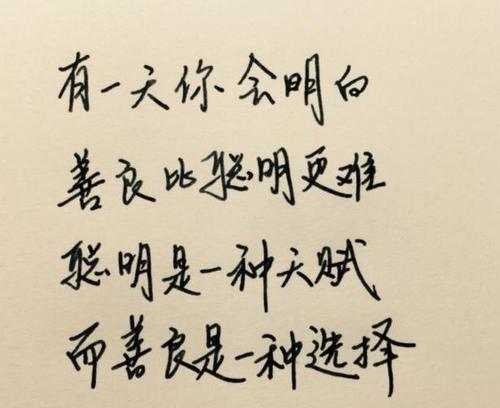 有一天你会明白
善良比聪明更难
聪明是一种天赋
而善良是一种选择